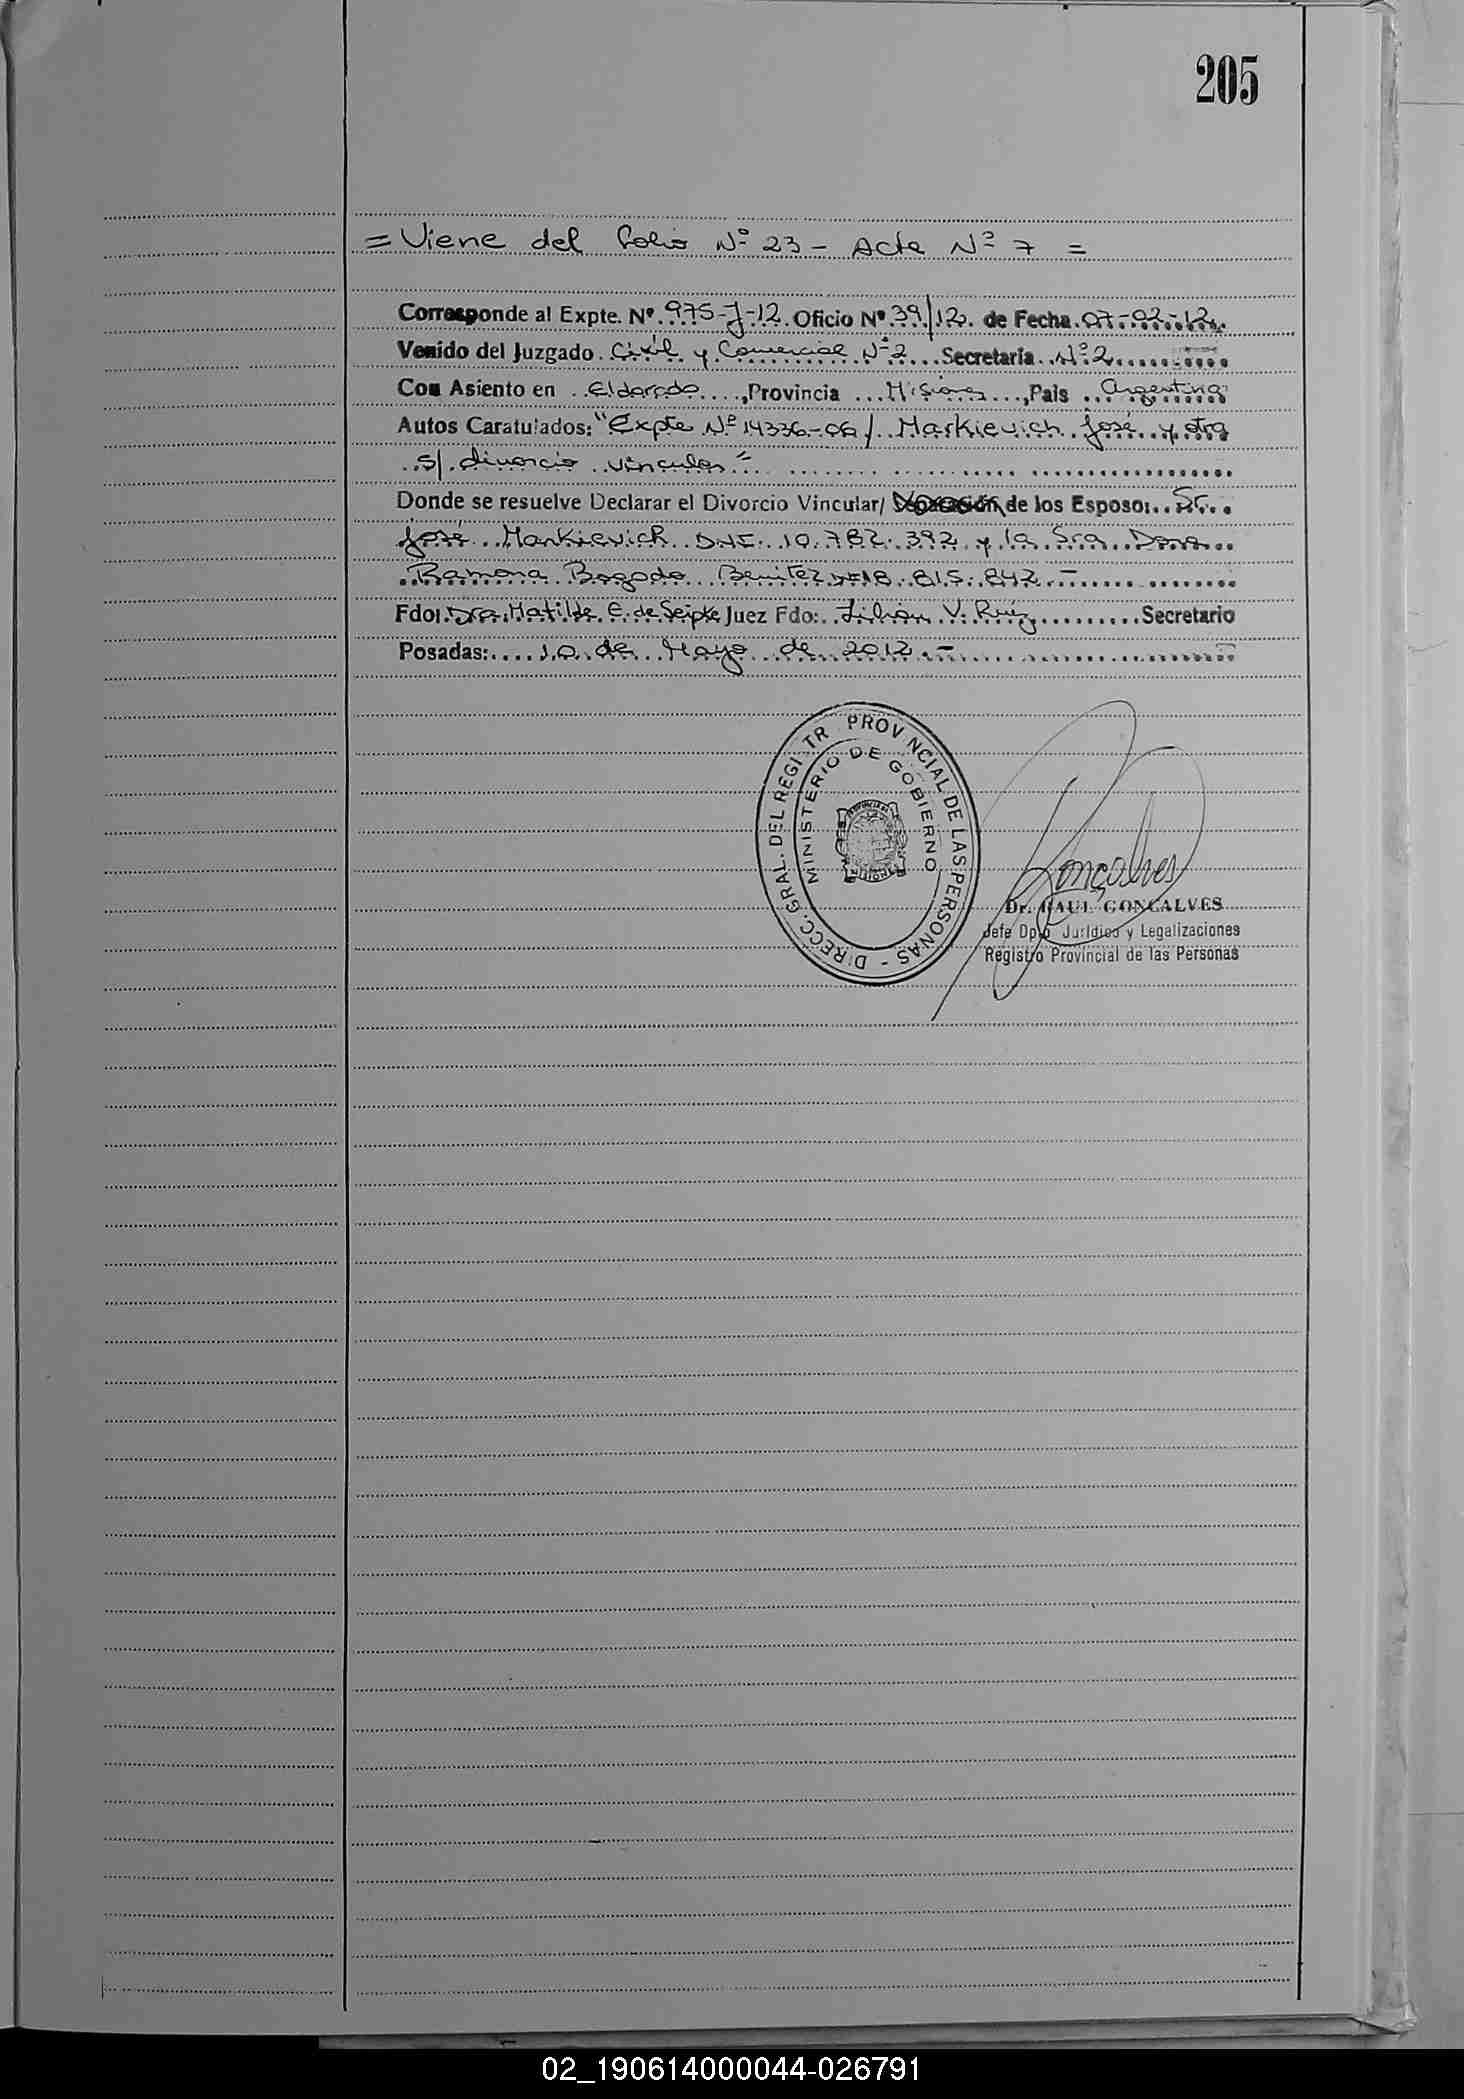 205
= Viene del folio Nº 23 - Acta Nº 7 =
Corresponde al Expte. Nº 975-J-12 Oficio Nº 39/12. de Fecha 07-02-12
Venido del Juzgado Civil y Comercial Nº 2 Secretaría Nº 2
Con Asiento en Eldorado, Provincia Misiones, Pais Argentina
Autos Caratulados: "Expte Nº 14336-06/ Markievich José y otra
s/ divorcio vincular"
Donde se resuelve Declarar el Divorcio Vincular/ Separación de los Esposo: Sr.
José Markievich DNI 10.782.392 y la Sra Dona
Ramona Bogado Benitez DNI 18.815.842 -
Fdo: Dra. Matilde E. de Seipke Juez Fdo: Lilian V. Ruiz Secretario
Posadas: 10 de Mayo de 2012.-
DIRECC. GRAL. DEL REGISTR PROVINCIAL DE LAS PERSONAS -
MINISTERIO DE GOBIERNO
Gonçalves
Dr. RAUL GONCALVES
Jefe Dpto Jurídico y Legalizaciones
Registro Provincial de las Personas
02_190614000044-026791